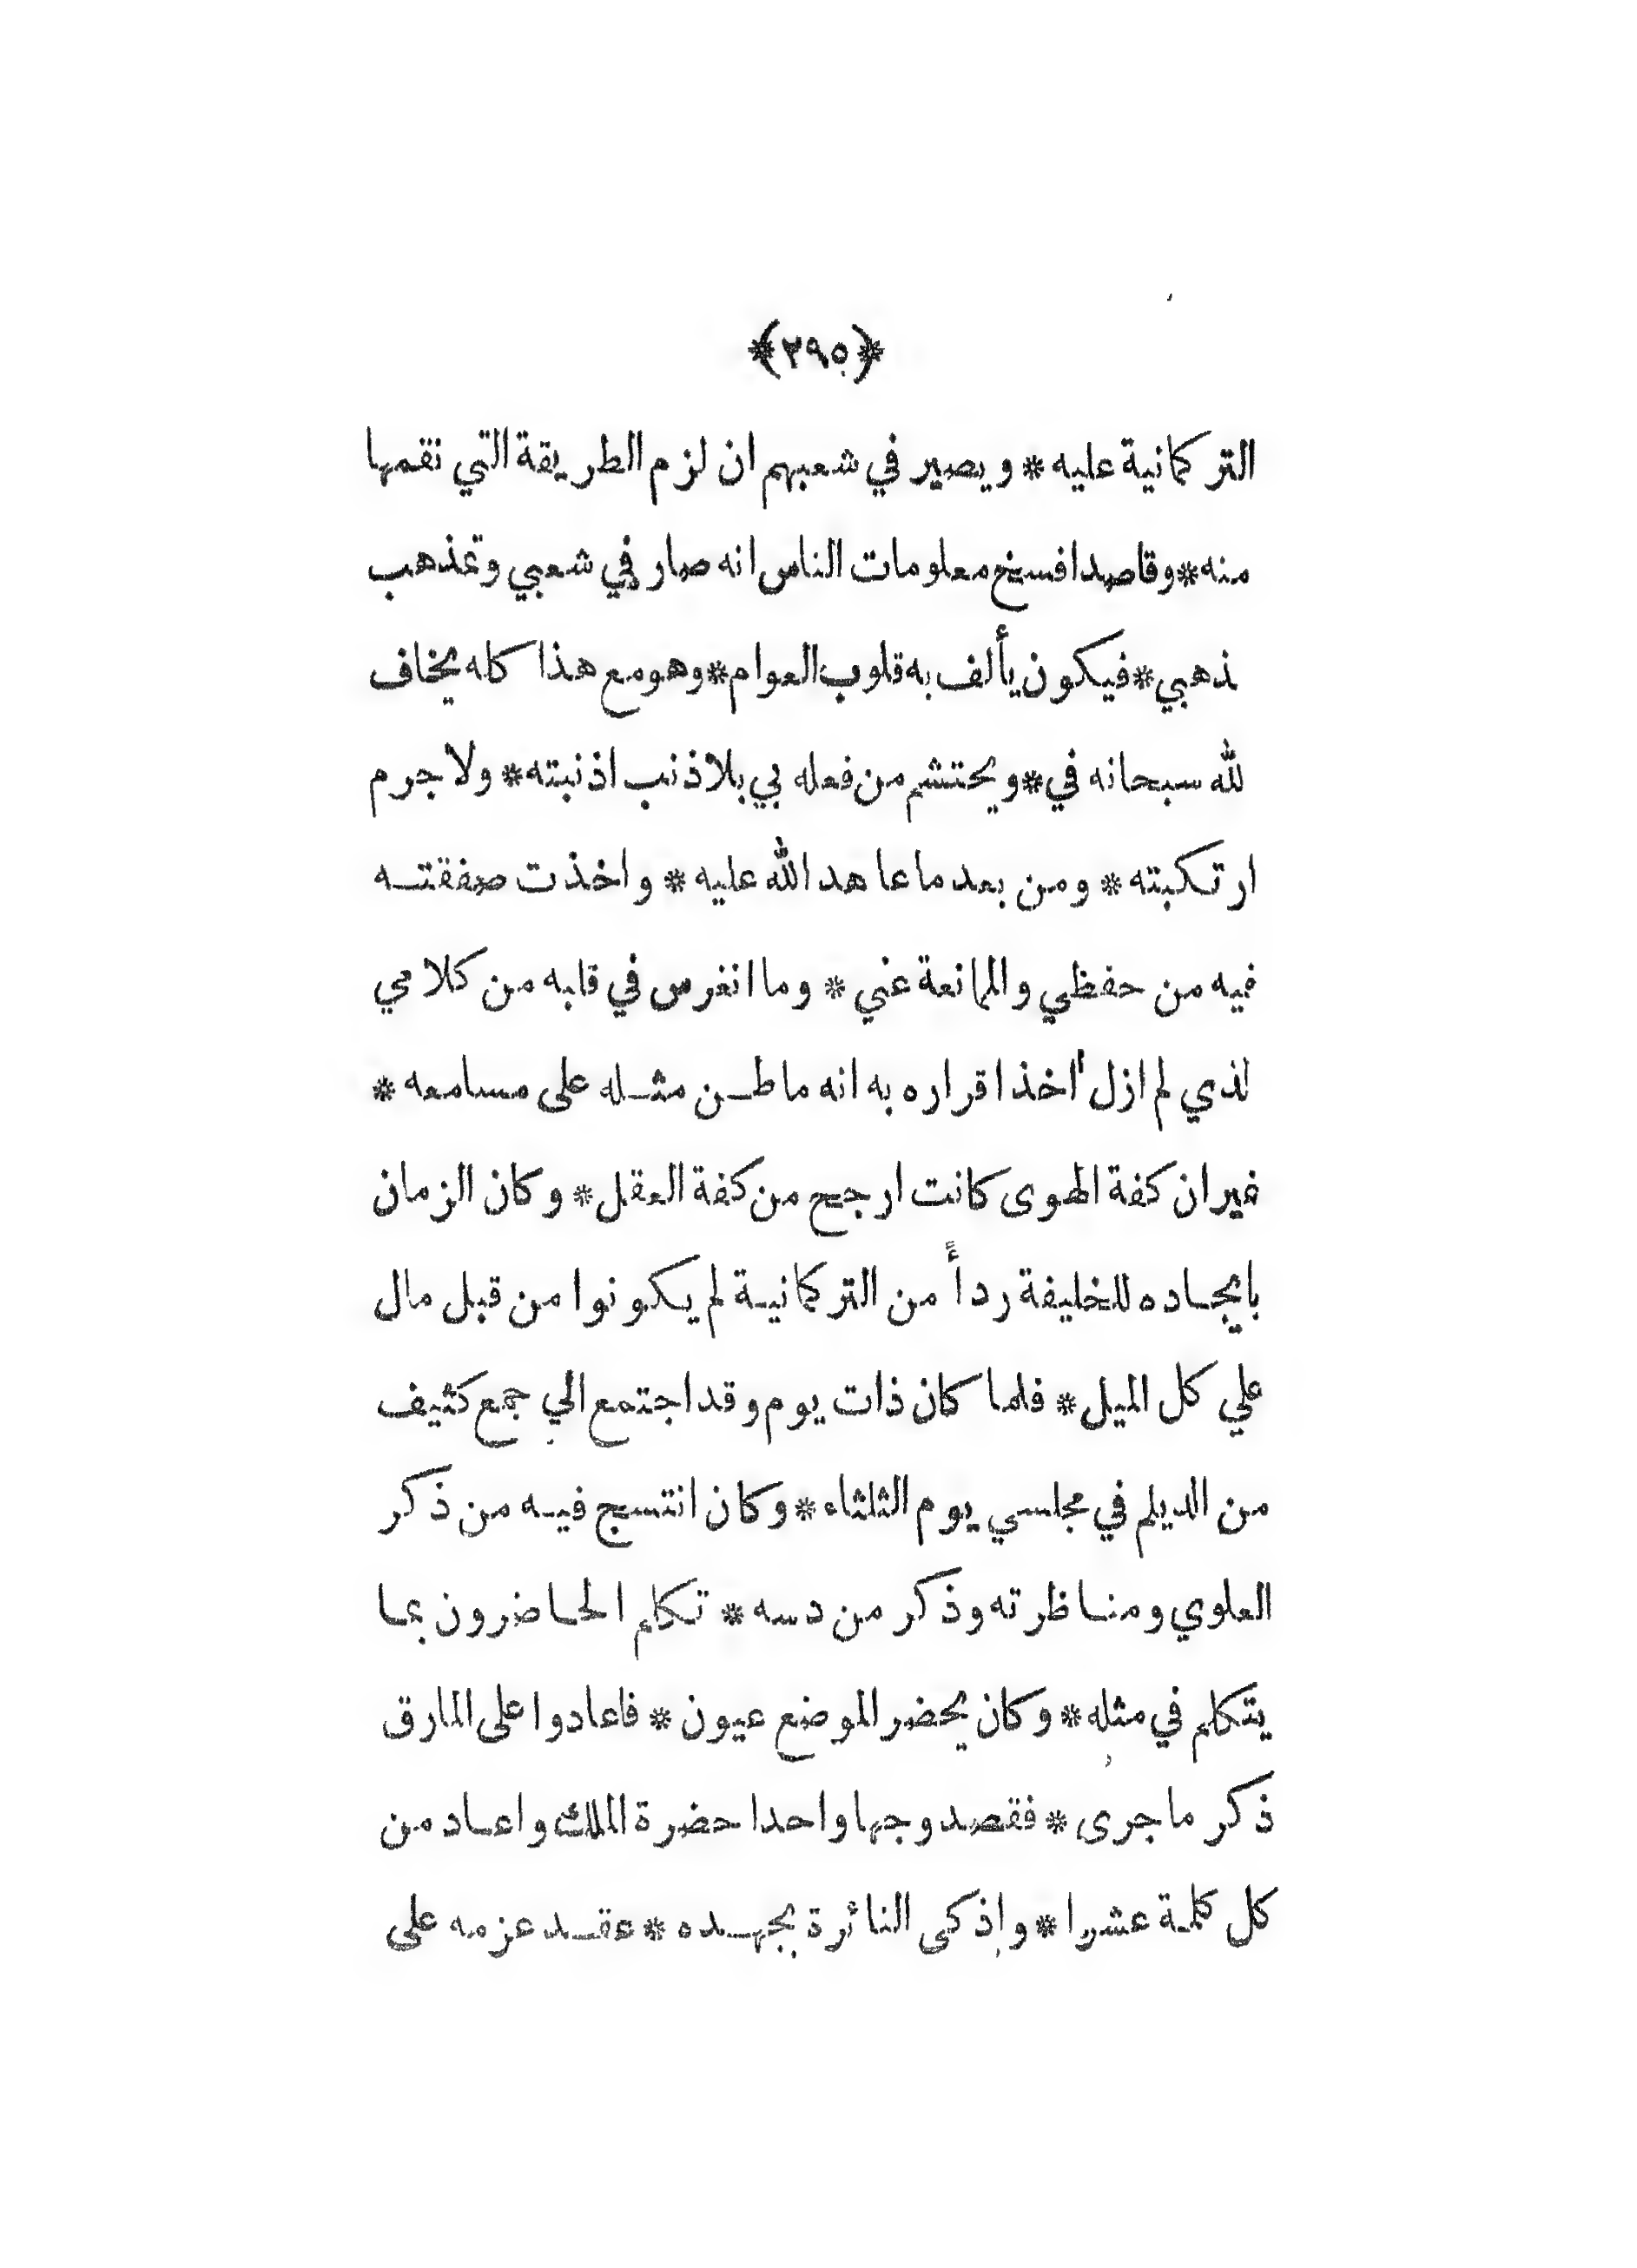 *(٢٩٥)*
التركمانية عليه * ويصير في شعبهم ان لزم الطريقة التي نقمها
منه * وقاصدا فسخ معلومات الناس انه صار في شعبي وتمذهب
ذهبي * فيكون يألف به قلوب العوام * وهو مع هذا كله يخاف
لله سبحانه في * ويحتشم من فعله بي بلا ذنب اذنبته * ولا جرم
ارتكبته * ومن بعد ما عاهد الله عليه * واخذت صفقته
فيه من حفظي والممانعة عني * وما انغرس في قلبه من كلامي
لذي لم ازل أخذ اقراره به انه ما طن مثله على مسامعه *
غير ان كفة الهوى كانت ارجح من كفة العقل * وكان الزمان
بايجاده للخليفة ردأً من التركمانية لم يكونوا من قبل مال
علي كل الميل * فلما كان ذات يوم وقد اجتمع الي جمع كثيف
من الديلم في مجلسي يوم الثلثاء * وكان انتسج فيه من ذكر
العلوي ومناظرته وذكر من دسه * تكلم الحاضرون بما
يتكلم في مثله * وكان يحضر الموضع عيون * فاعادوا على المارق
ذكر ما جرى * فقصد وجها واحدا حضرة الملك واعاد من
كل كلمة عشرا * واذكى النائرة بجهده * عقد عزمه على